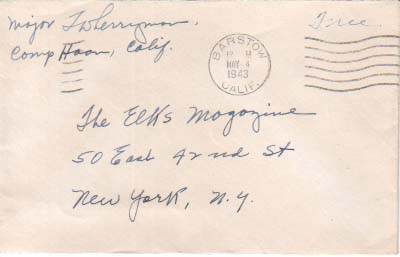 Major
Camp Haan, Calif.
Free.
BARSTOW
MAY 4
1943
CALIF.
The Elks Magazine
50 East 42nd St
New York, N.Y.